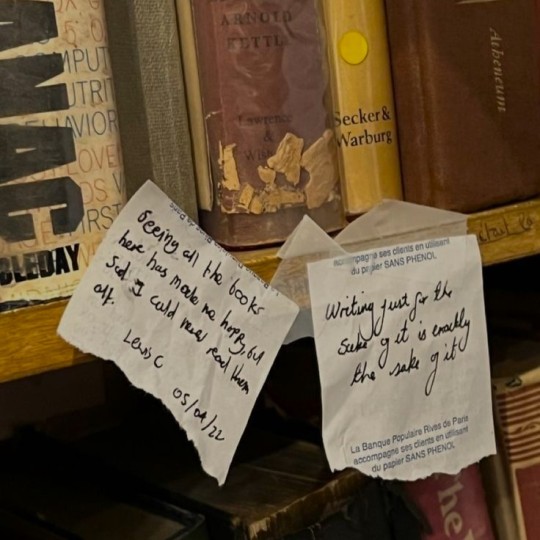 COMPUT
NUTRIT
BEHAVIOR
LOVE
FIRST
ANAC
OLEDAY
ARNOLD
KETTLE
Lawrence
&
Secker &
Warburg
Atheneum
Seeing all the books
here has made me happy, but
sad I could never read them
all.
Lewis C
05/04/22
accompagne ses clients en utilisant
du papier SANS PHENOL
Writing just for the
sake of it is exactly
the sake of it
La Banque Populaire Rives de Paris
accompagne ses clients en utilisant
du papier SANS PHENOL
the